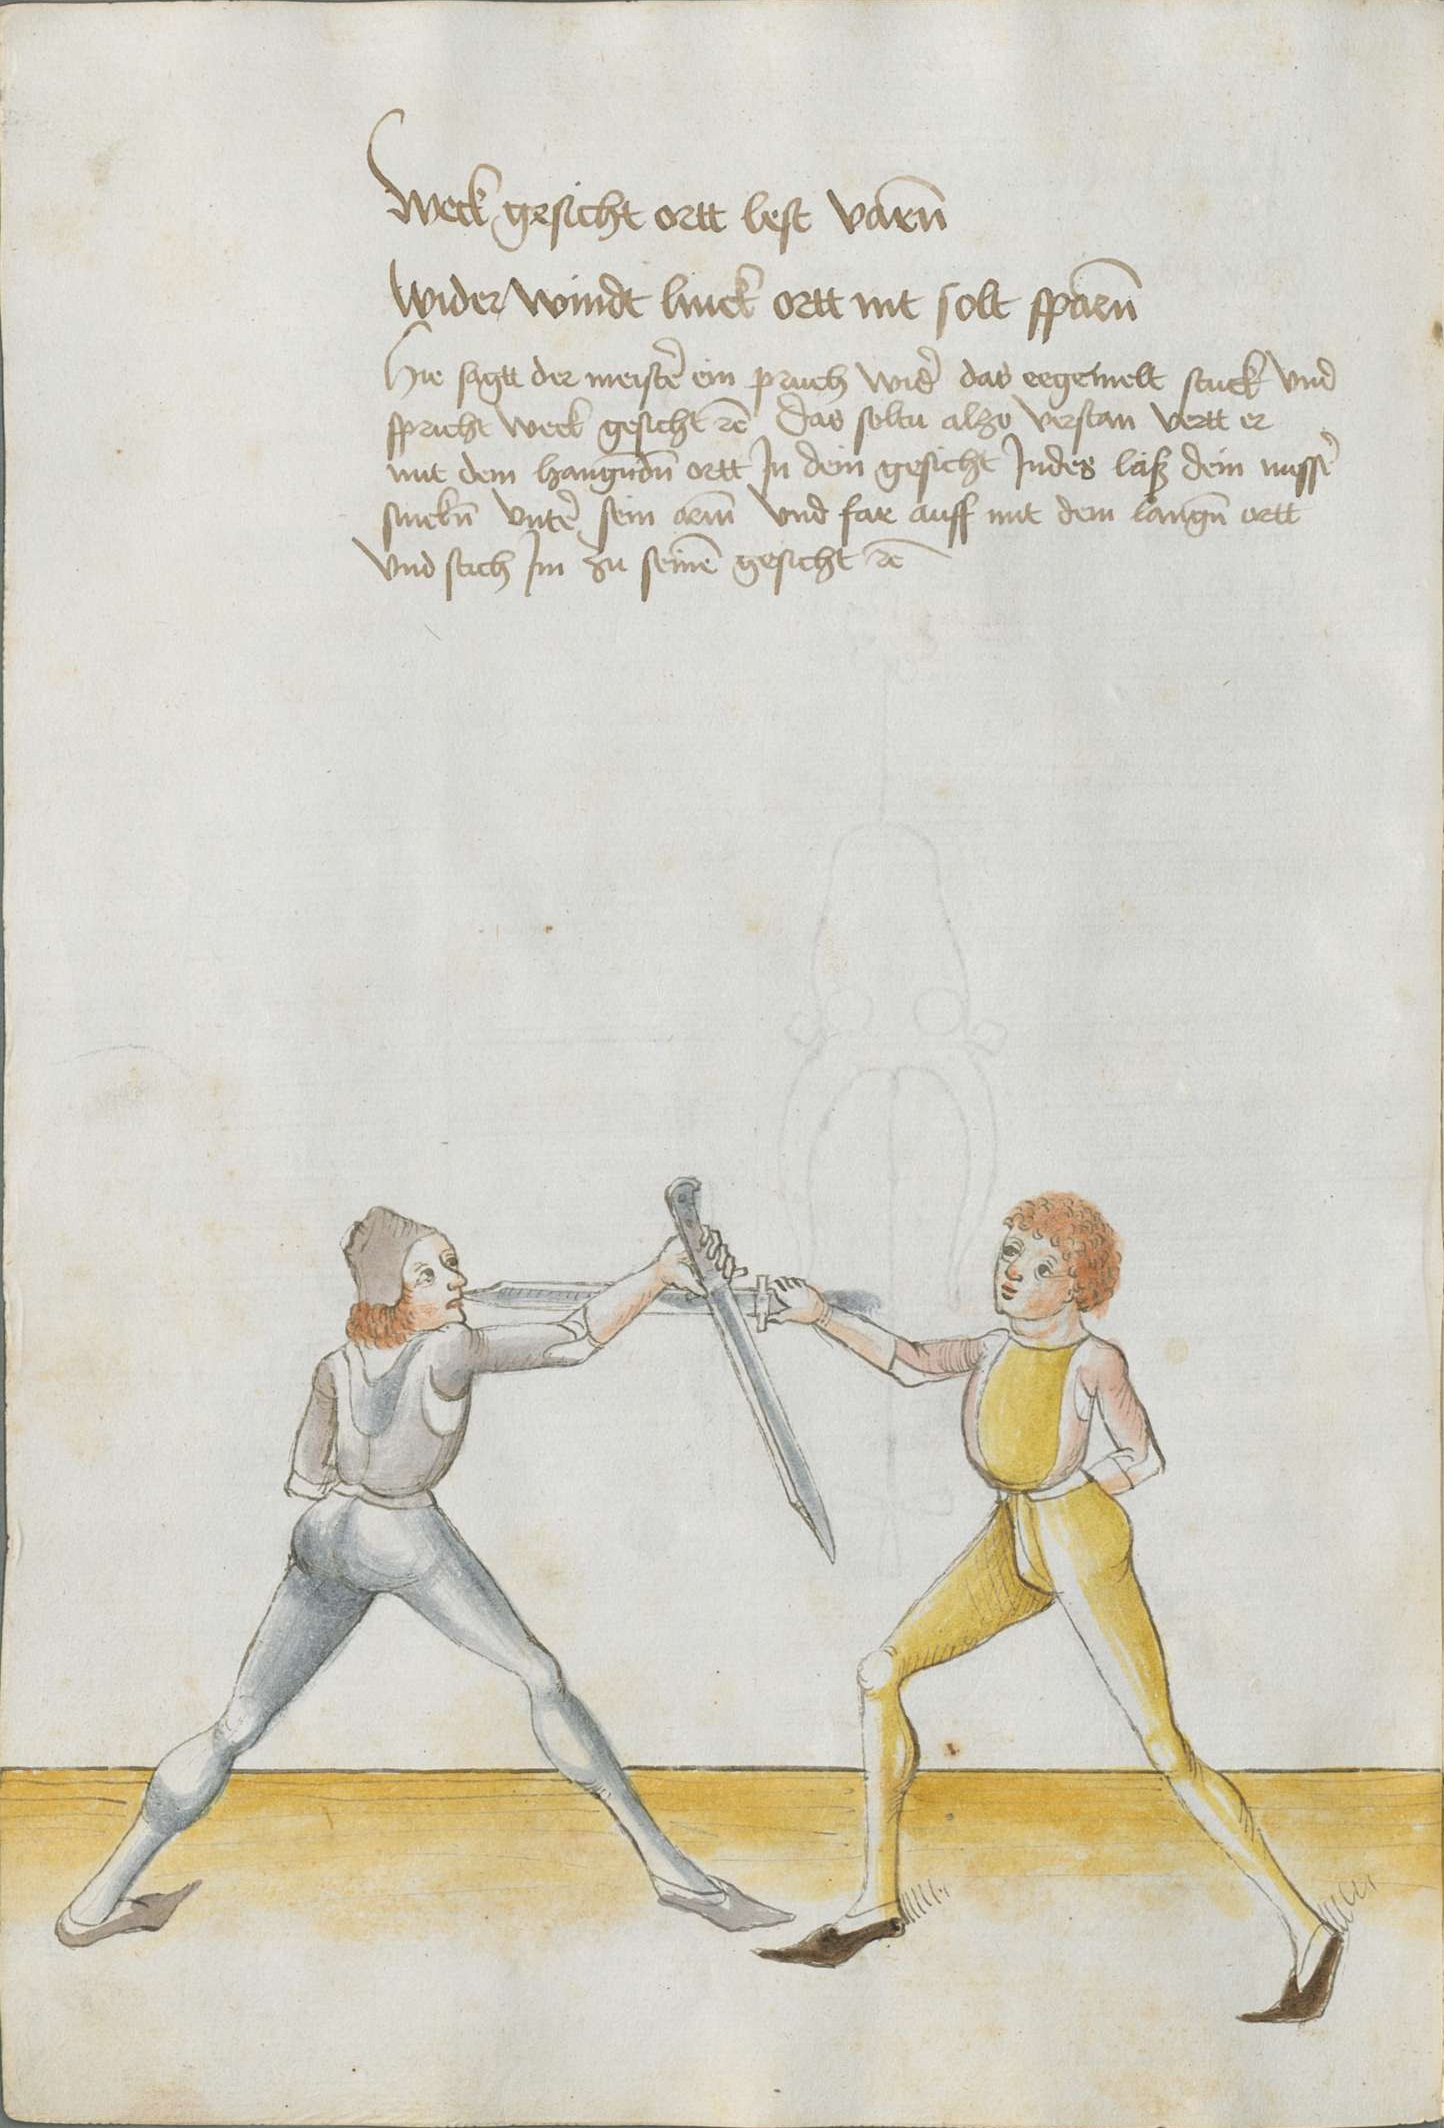 Weck gesicht ortt lest varñ
Wider windt linck ortt nit solt sparñ
Hie sagtt der meister ein pruch wider das eegemelt stuck vnd
spricht weck gesicht rc̃ Das soltu alzo verstan vertt er
mit dem hangñdñ ortt Jn dein gesicht Jndes laß dein messer
sinckñ vnter sein arm̃ vnd far auff mit dem langñ ortt
vnd stich Jm zu seinem̃ gesicht rc̃